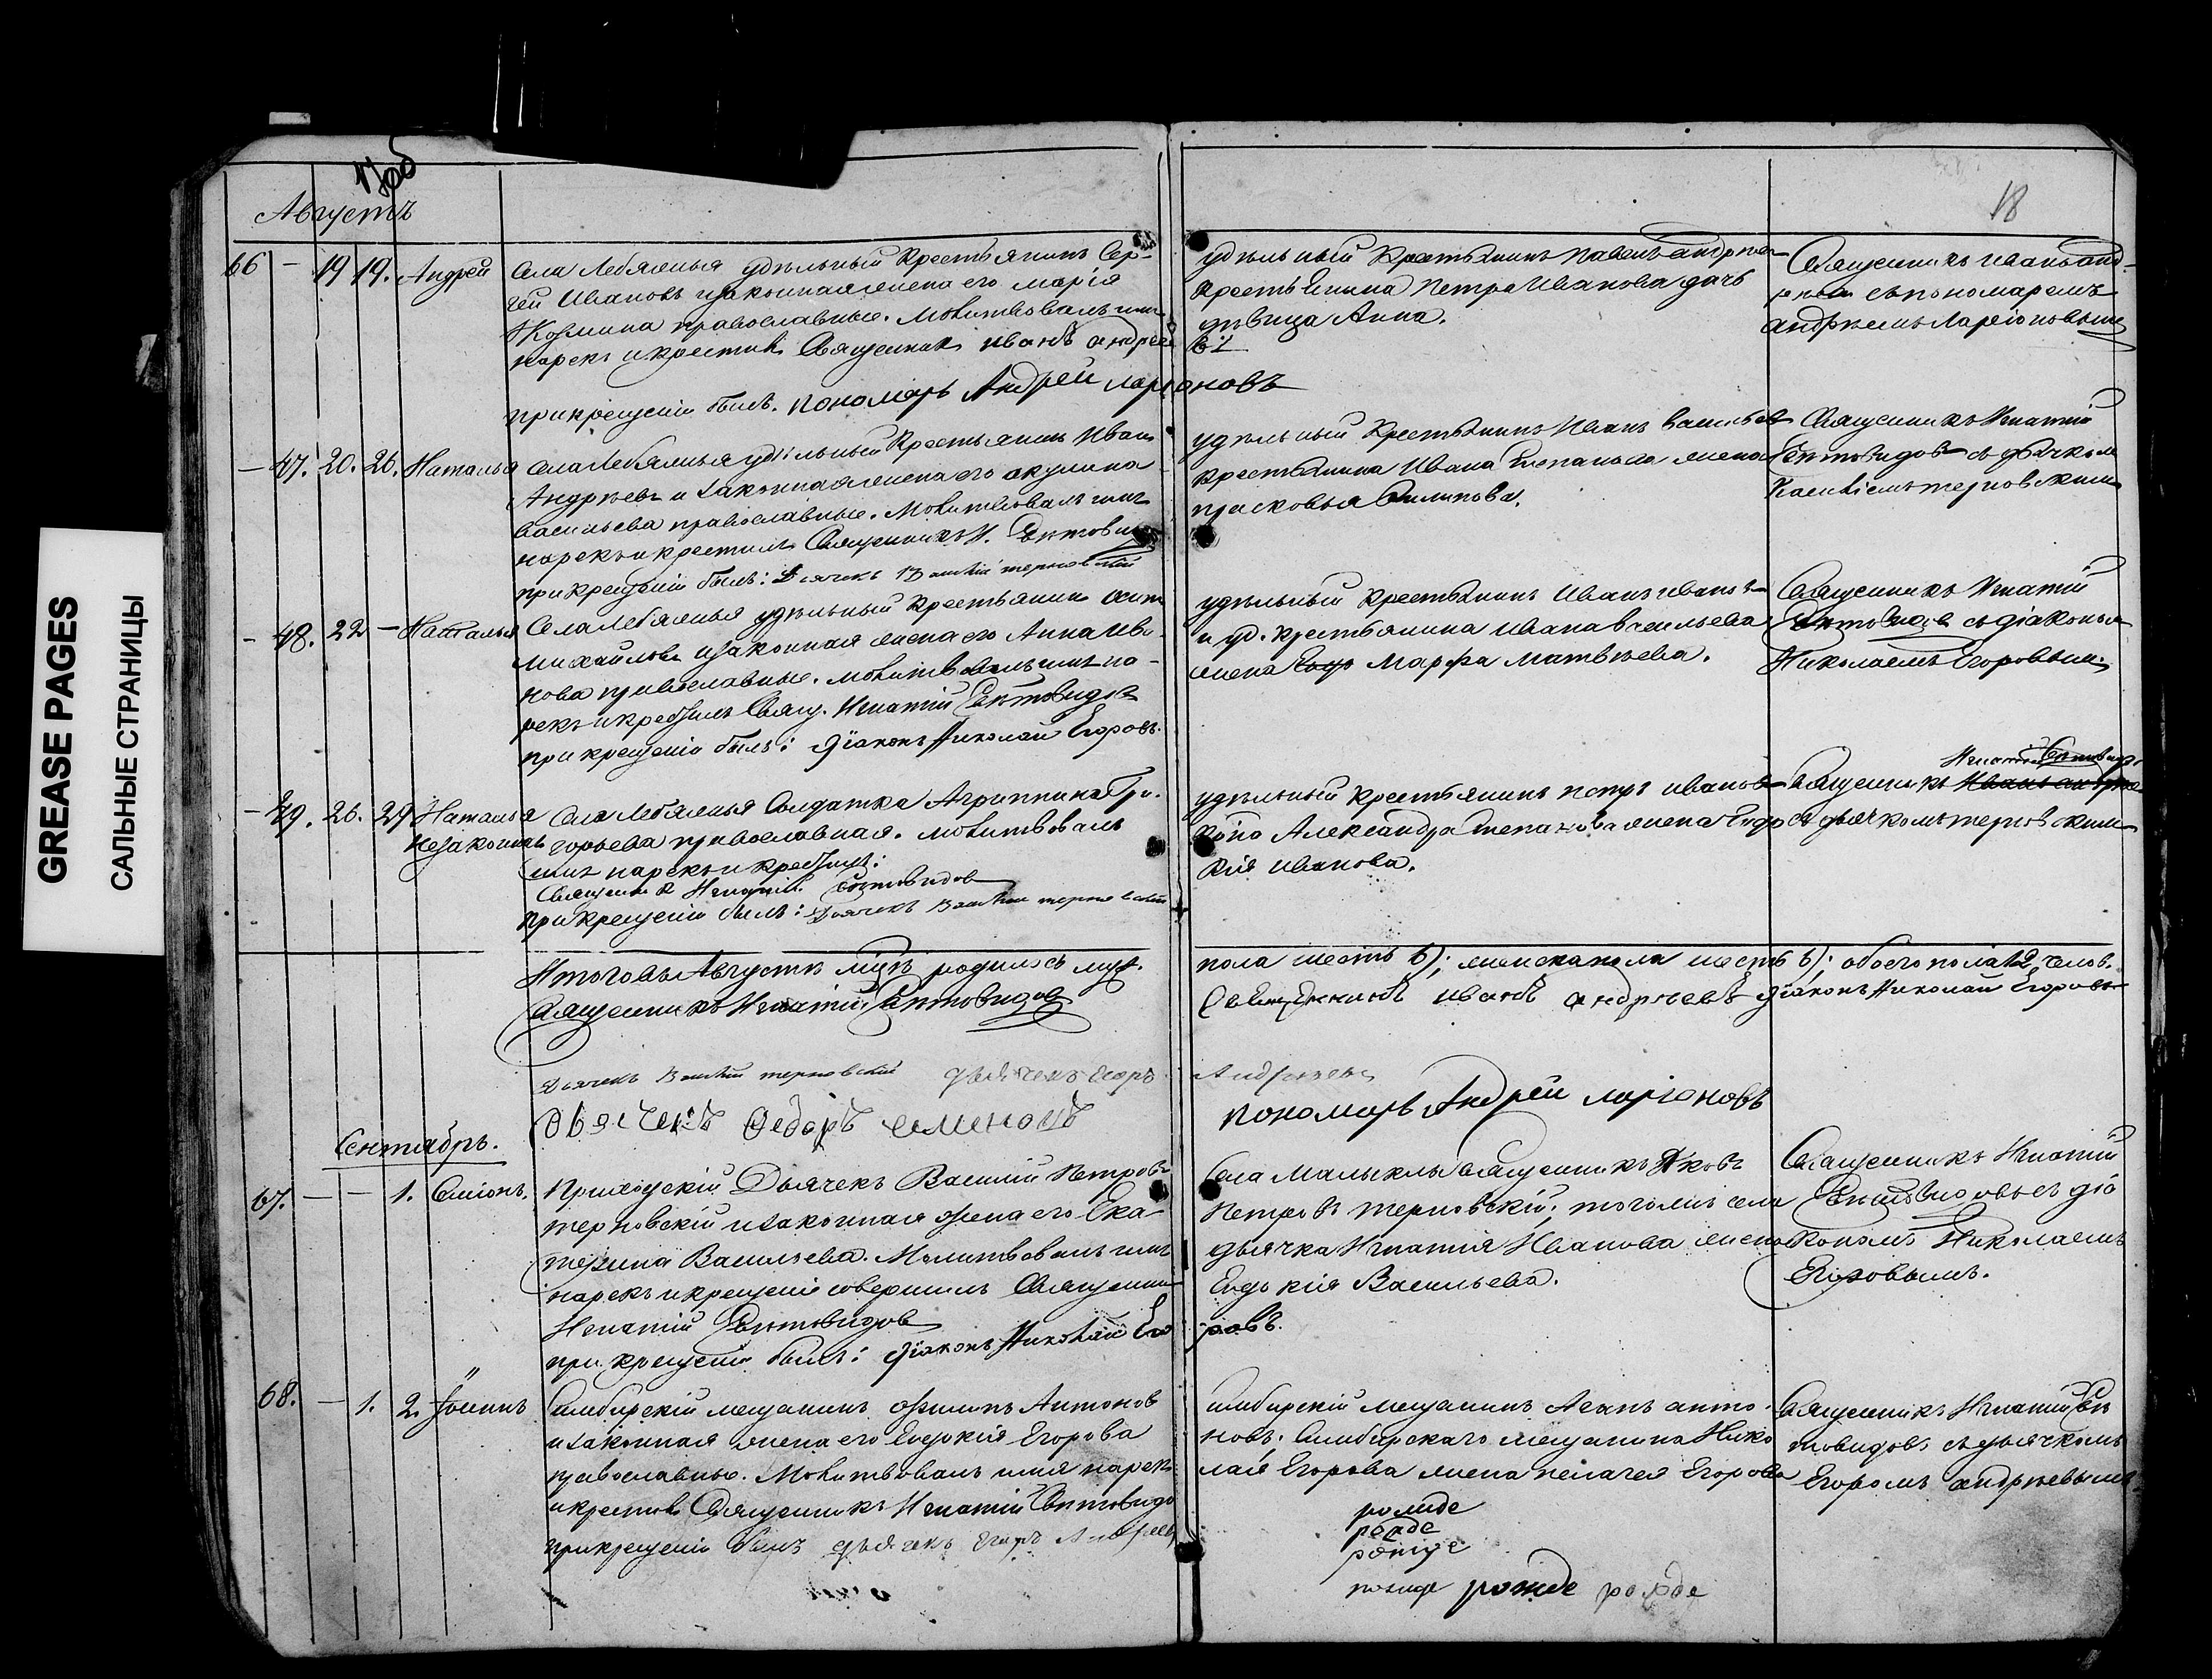 GREASE PAGES
САЛЬНЫЕ СТРАНИЦЫ
17об
18
Августъ
66 – 19 19. Андрей
Села Лебяжья удѣльный Крестьянинъ Сер-
гей Ивановъ и законная жена его Марія
Козмина православные. Молитвовалъ имя
нарекъ и крестилъ Священник иванъ андрее
въ
при крещеніи былъ. пономарь Андрей ларіоновъ
удѣльный Крестьянинъ Павелъ андреев
Крестьянина Петра Иванова дочь
дѣвица Анна.
Священникъ иванъ анд-
реевъ съ пономаремъ
андреемъ Ларіоновымъ
– 47. 20. 26. Наталья
Села Лебяжья удѣльный Крестьянинъ Иванъ
Андреевъ и законная жена его акулина
васильева православные. Молитвовалъ имя
нарекъ и крестилъ Священникъ И. Ектовидов
при крещеніи былъ: Дьячекъ Василій терновскій
удѣльный Крестьянинъ Иванъ васильев
крестьянина Ивана Степанова жена
прасковья Филипова.
Священникъ Игнатій
Ектовидов съ дьячкомъ
Василіемъ терновскимъ
– 48. 22 – Наталья
Села Лебяжья удѣльный Крестьянинъ осипъ
михайловъ и законная жена его Анна Ива-
нова православные. молитвовалъ имя на-
рекъ и крестилъ Свящ. Игнатій Ектовидов
при крещеніи былъ: Діаконъ Николай Егоровъ.
удѣльный Крестьянинъ Иванъ ивановъ
и уд. крестьянина Ивана васильева
жена Марфа Матвѣева.
Священникъ Игнатій
Ектовидов съ діакономъ
Николаемъ Егоровымъ.
– 49. 26. 29 Наталья
незаконнъ
Села Лебяжья Солдатка Агриппина Гри-
горьева православная. молитвовалъ
имя нарекъ и крестилъ:
Священник Игнатій Ектовидов
при крещеніи былъ: Дьячекъ Василій терновскій
удѣльный Крестьянинъ петръ иванов
Александра Степанова жена Евдо
кія иванова.
Игнатій Ектовидо
Священникъ Иванъ андрее
съ дьячкомъ терновскимъ
Итого въ Августѣ мцѣ родилось муж.
пола шесть 6); женскаго пола шесть 6); обоего пола 12 челов.
Священникъ Игнатій Ектовидов
Священникъ иванъ андреевъ Діаконъ Николай Егоровъ
Дьячекъ Василій терновскій дьячекъ егоръ Андреевъ
дьячекъ Федоръ семеновъ
пономарь Андрей ларіоновъ
Сентябрь.
67. – – 1. Симіонъ.
Приходскій Дьячекъ Василій Петровъ
терновскій и законная жена его Ека-
терина Васильева. Молитвовалъ имя
нарекъ и крещеніе совершилъ Священник
Игнатій Ектовидов
при крещеніи былъ: Діаконъ Николай Его
ровъ.
Села Малыклы священникъ Яковъ
Петровъ терновскій; того же села
дьячка Игнатія Иванова жена
Евдокія Васильева.
Священникъ Игнатій
Ектовидовъ съ діа
кономъ Николаемъ
Егоровымъ.
68. – 1. 2. Іоаннъ
Симбирскій мещанинъ Филипъ Антонов
и законная жена его Евдокія Егорова
православные. Молитвовалъ имя нарекъ
и крестилъ Священникъ Игнатій Ектовидо
при крещеніи былъ дьячекъ егоръ Андреев
симбирскій мещанинъ анто-
новъ. Симбирскаго мещанина Нико
лая Егорова жена пелагея Егорова
Священникъ Игнатій Ек
товидовъ съ дьячкомъ
Егоромъ андреевымъ
рожде
рожде
рожде
рожде рожде рожде